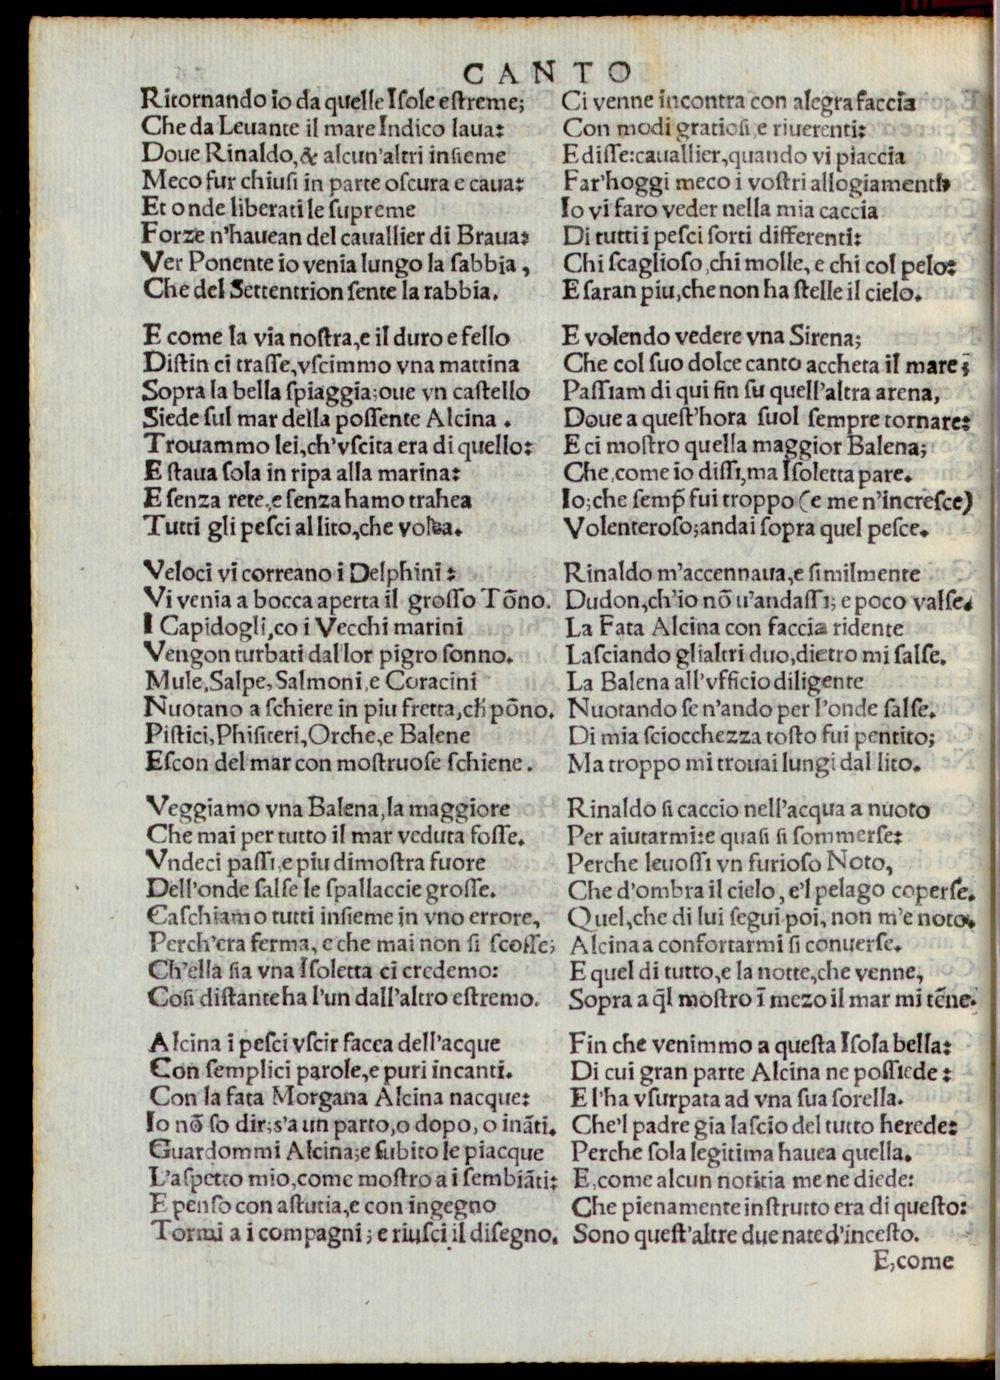 CANTO
Ritornando io da quelle Iſole eſtreme;
Che da Leuante il mare Indico laua:
Doue Rinaldo, & alcun'altri inſieme
Meco fur chiuſi in parte oſcura e caua:
Et onde liberati le ſupreme
Forze n'hauean del cauallier di Braua:
Ver Ponente io venia lungo la ſabbia,
Che del Settentrion ſente la rabbia.
E come la via noſtra, e il duro e fello
Diſtin ci traſſe, vſcimmo vna mattina
Sopra la bella ſpiaggia; oue vn caſtello
Siede ſul mar della poſſente Alcina.
Trouammo lei, ch'vſcita era di quello:
E ſtaua ſola in ripa alla marina:
E ſenza rete, e ſenza hamo trahea
Tutti gli peſci al lito, che volea.
Veloci vi correano i Delphini:
Vi venia a bocca aperta il groſſo Tōno.
I Capidogli, co i Vecchi marini
Vengon turbati dal lor pigro ſonno.
Mule, Salpe, Salmoni, e Coracini
Nuotano a ſchiere in piu fretta, ch̄ pōno.
Piſtici, Phiſiteri, Orche, e Balene
Eſcon del mar con moſtruoſe ſchiene.
Veggiamo vna Balena, la maggiore
Che mai per tutto il mar veduta foſſe.
Vndeci paſſi, e piu dimoſtra fuore
Dell'onde ſalſe le ſpallaccie groſſe.
Caſchiamo tutti inſieme in vno errore,
Perch'era ferma, e che mai non ſi ſcoſſe;
Ch'ella ſia vna Iſoletta ci credemo:
Coſi diſtante ha l'un dall'altro eſtremo.
Alcina i peſci vſcir facea dell'acque
Con ſemplici parole, e puri incanti.
Con la fata Morgana Alcina nacque:
Io nō ſo dir; s'a un parto, o dopo, o ināti.
Guardommi Alcina; e ſubito le piacque
L'aſpetto mio, come moſtro a i ſembiāti:
E penſo con aſtutia, e con ingegno
Tormi a i compagni; e riuſci il diſegno.
Ci venne incontra con alegra faccia
Con modi gratioſi, e riuerenti:
E diſſe: cauallier, quando vi piaccia
Far'hoggi meco i voſtri allogiamenti,
Io vi faro veder nella mia caccia
Di tutti i peſci ſorti differenti:
Chi ſcaglioſo, chi molle, e chi col pelo:
E ſaran piu, che non ha ſtelle il cielo.
E volendo vedere vna Sirena;
Che col ſuo dolce canto accheta il mare;
Paſſiam di qui fin ſu quell'altra arena,
Doue a queſt'hora ſuol ſempre tornare:
E ci moſtro quella maggior Balena;
Che, come io diſſi, ma Iſoletta pare.
Io; che ſemp̄ fui troppo (e me n'increſce)
Volenteroſo; andai ſopra quel peſce.
Rinaldo m'accennaua, e ſimilmente
Dudon, ch'io nō u'andaſſi; e poco valſe.
La Fata Alcina con faccia ridente
Laſciando glialtri duo, dietro mi ſalſe.
La Balena all'vfficio diligente
Nuotando ſe n'ando per l'onde ſalſe.
Di mia ſciocchezza toſto fui pentito;
Ma troppo mi trouai lungi dal lito.
Rinaldo ſi caccio nell'acqua a nuoto
Per aiutarmi: e quaſi ſi ſommerſe:
Perche leuoſſi vn furioſo Noto,
Che d'ombra il cielo, e'l pelago coperſe.
Quel, che di lui ſegui poi, non m'e noto.
Alcina a confortarmi ſi conuerſe.
E quel di tutto, e la notte, che venne,
Sopra a q̄l moſtro ī mezo il mar mi tēne.
Fin che venimmo a queſta Iſola bella:
Di cui gran parte Alcina ne poſſiede:
E l'ha vſurpata ad vna ſua ſorella.
Che'l padre gia laſcio del tutto herede:
Perche ſola legitima hauea quella.
E, come alcun notitia me ne diede:
Che pienamente inſtrutto era di queſto:
Sono queſt'altre due nate d'inceſto.
E, come